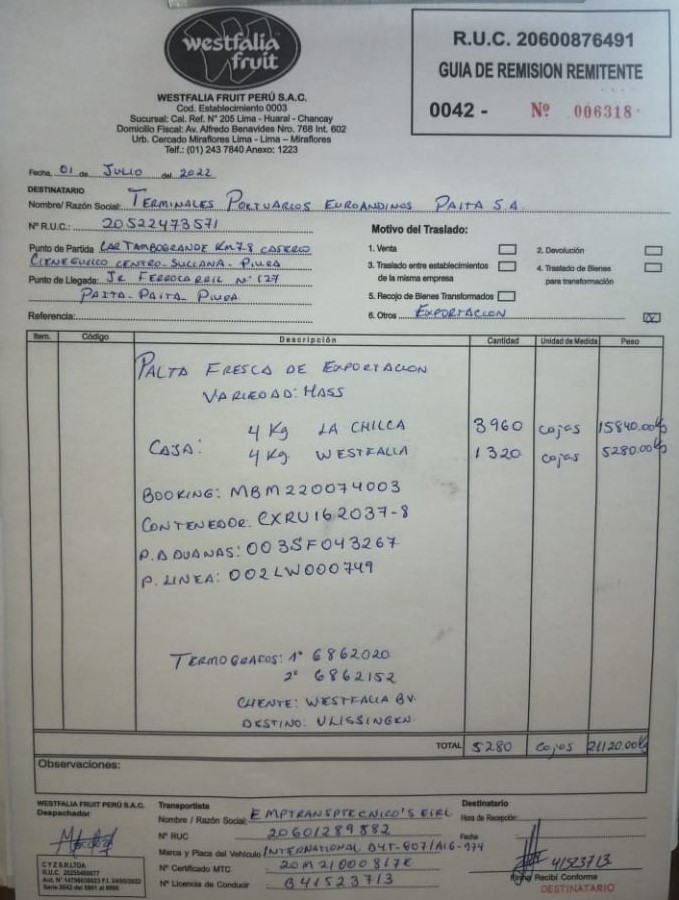 westfalia
fruit
WESTFALIA FRUIT PERÚ S.A.C.
Cod. Establecimiento 0003
Sucursal: Cal. Ref. N° 205 Lima - Huaral - Chancay
Domicilio Fiscal: Av. Alfredo Benavides Nro. 768 Int. 602
Urb. Cercado Miraflores Lima - Lima – Miraflores
Telf.: (01) 243 7840 Anexo: 1223
R.U.C. 20600876491
GUIA DE REMISION REMITENTE
0042 - Nº 006318
Fecha, 01 de JULIO del 2022
DESTINATARIO
Nombre/ Razón Social: TERMINALES PORTUARIOS EUROANDINOS PAITA S.A.
N° R.U.C.: 20522473571
Punto de Partida CAR TAMBOGRANDE KM 7.8 CASERIO
CIENEGUILLO CENTRO-SULLANA-PIURA
Punto de Llegada: JR FERROCARRIL N° 127
PAITA-PAITA-PIURA
Referencia:
Motivo del Traslado:
1. Venta
2. Devolución
3. Traslado entre establecimientos
de la misma empresa
4. Traslado de Bienes
para transformación
5. Recojo de Bienes Transformados
6. Otros EXPORTACION X
Item. Código Descripción Cantidad Unidad de Medida Peso
PALTA FRESCA DE EXPORTACION
VARIEDAD: HASS
CAJA:
4 Kg LA CHILCA 3960 cajas 15840.00Kg
4 Kg WESTFALIA 1320 cajas 5280.00Kg
BOOKING: MBM220074003
CONTENEDOR: CXRU162037-8
P. ADUANAS: 003SF043267
P. LINEA: 002LW000749
TERMOGRAFOS: 1° 6862020
2° 6862152
CLIENTE: WESTFALIA BV.
DESTINO: VLISSINGEN
TOTAL 5280 cajas 21120.00Kg
Observaciones:
WESTFALIA FRUIT PERÚ S.A.C.
Despachador
C Y Z S.R.LTDA
Transportista
Nombre / Razón Social: EMPTRANSPTECNICO'S EIRL
N° RUC 20601289882
Marca y Placa del Vehículo INTERNATIONAL D4T-807/A16-974
N° Certificado MTC 20M21000817E
N° Licencia de Conducir B41523713
Destinatario
Hora de Recepción:
Fecha
41523713
Firma Recibí Conforme
DESTINATARIO